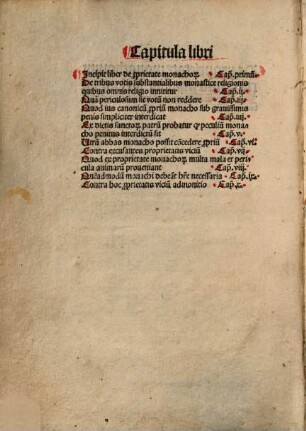 Capitula libri
Incipit liber de ꝓprietate monachoꝝ Cap. primū.
De tribus votis substantialibus monastice religionis
quibus omnis religio innititur Cap. ij.
Quā periculosum sit votū non reddere Cap. iij.
Quod ius canonicū ꝓpriū monacho sub grauissimis
penis simpliciter interdicat Cap. iiij.
Ex dictis sanctoꝝ patrū probatur ꝙ peculiū mona
cho penitus interdictū sit Cap. v.
Utrū abbas monacho possit cōcedere ꝓpriū Cap. vi.
Contra excusantes proprietatis viciū Cap. vij.
Quod ex proprietate monachoꝝ multa mala et peri
cula animarū proueniant Cap. viij.
Quēadmodū monachi debeāt hr̄e necessaria Cap. ix.
Contra hoc ꝓprietatis viciū admonitio Cap. x.